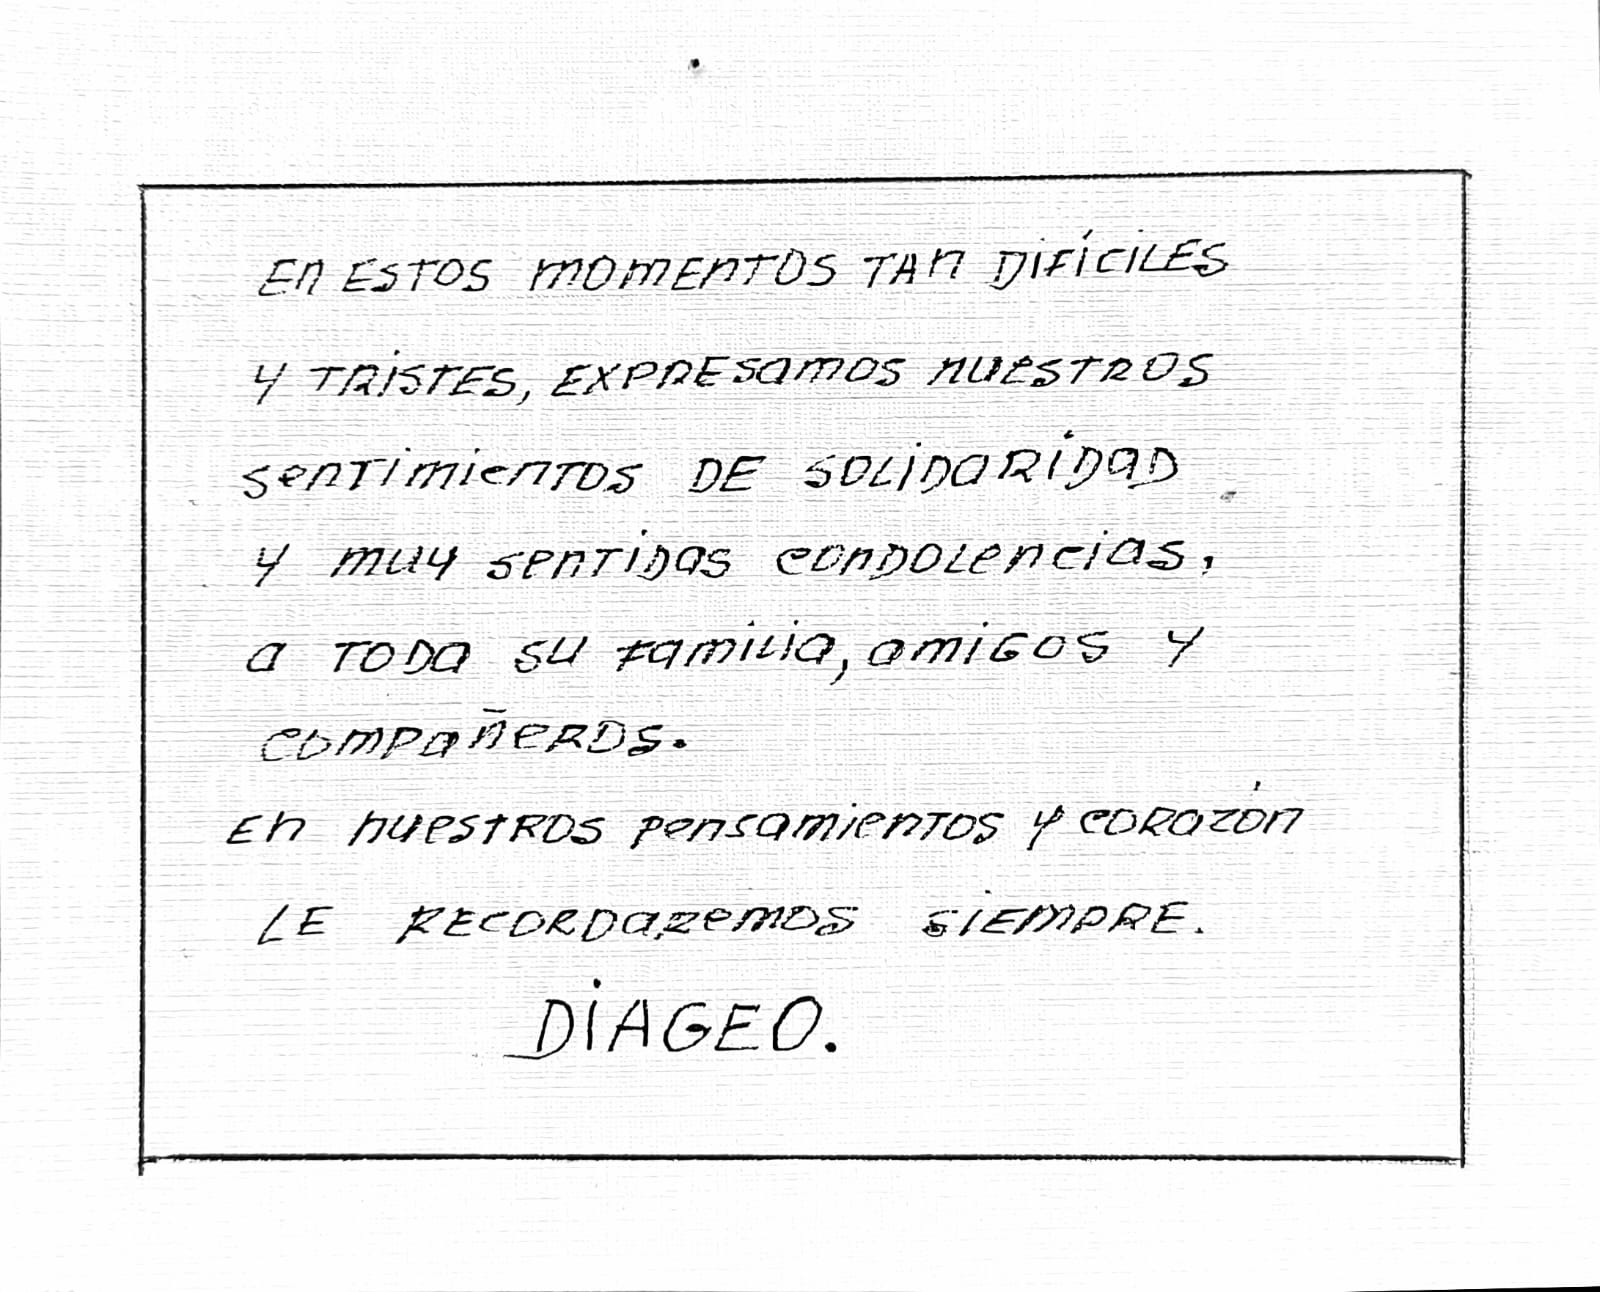 En ESTOS momEnTOS TAn DiFíCiLES
y TRiSTES, EXPRESamos nuestros
sentimientos DE SOLiDaRiDaD
y muy sentidas condolencias,
a TODa su Familia, amigos y
compañeros.
En nuestros pensamientos y corazón
LE RECORDaremos SiEMPRE.
DiAGEO.